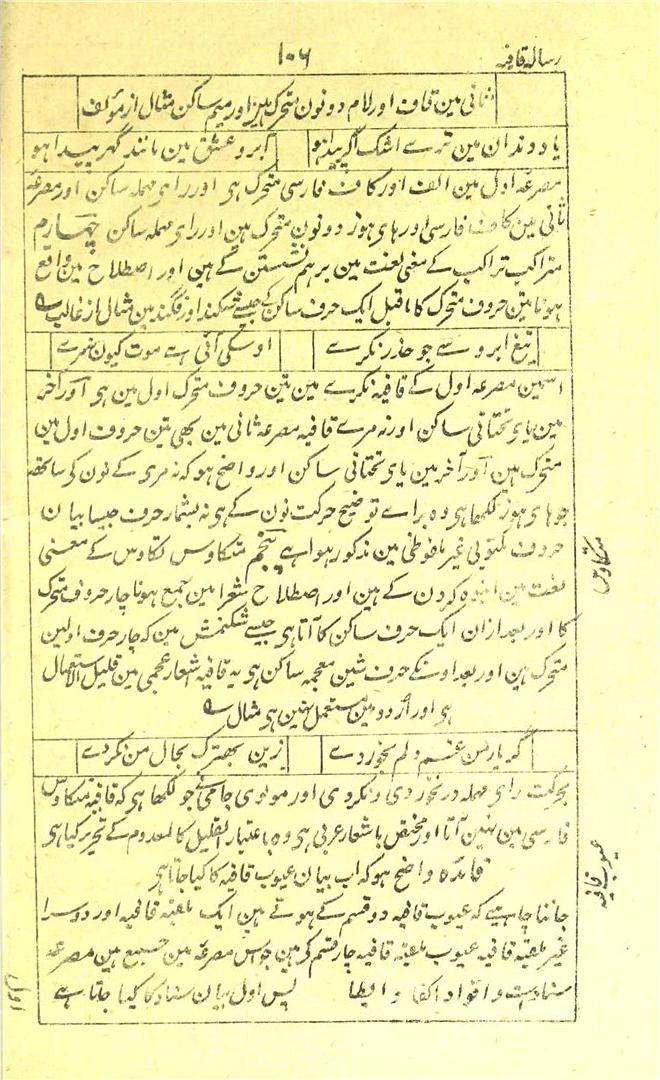 رسالہ قافیہ
۱۰۶
ثانی مین قاف اور لام دونون متحرک ہین اور میم ساکن مثال از مؤلف
یاد دندان مین ترے اشک اگر پیدا ہو ابر و عشق مین مانند گہر پیدا ہو
مصرعہ اول مین الف اور کاف فارسی متحرک ہی اور رای مہملہ ساکن اور مصرعہ
ثانی مین کاف فارسی اور ہای ہوز دونون متحرک ہین اور رای مہملہ ساکن چہارم
متراکب تراکب کے معنی لغت مین برہم نشستن کے ہین اور اصطلاح مین واقع
ہونا تین حروف متحرک کا ماقبل ایک حرف ساکن کے جیسے شکند اور فگند ہین مثال از غالب ؎
تیغ ابرو سے جو حذر نکرے اوسکی آئی ہے موت کیون نمرے
اسمین مصرعہ اول کے قافیہ نکرے مین تین حروف متحرک اول مین ہی اور آخر
مین یای تحتانی ساکن اور نہ مرے قافیہ مصرعہ ثانی مین بھی تین حروف اول مین
متحرک ہین اور آخر مین یای تحتانی ساکن اور واضح ہو کہ نہ مری کے نون کی ساتھ
جو ہای ہوز لکھا ہی وہ براے توضیح حرکت نون کے ہی نہ بشمار حرف جیسا بیان
حروف مکتوبی غیر ملفوظی مین مذکور ہوا ہے پنجم متکاوس تکاوس کے معنی
لغت مین انبوہ کردن کے ہین اور اصطلاح شعرا مین جمع ہونا چار حروف متحرک
کا اور بعد ازان ایک حرف ساکن کا آتا ہی جیسے شکنمش مین کہ چار حرف اولین
متحرک ہین اور بعد اونکے حرف شین معجمہ ساکن ہی یہ قافیہ اشعار عجمی مین قلیل الاستعمال
ہی اور اُردو مین مستعمل نہین ہی مثال ؎
گر یار من غم دلم بخوردے زین بہترک بحال من نکردے
بحرکت رای مہملہ در نخوردی و نکردی اور مولوی جامی نے جو لکھا ہی کہ قافیہ متکاوس
فارسی مین نہین آتا اور مختص باشعار عربی ہی وہ باعتبار القلیل کالمعدوم کے تحریر کیا ہی
فائدہ واضح ہو کہ اب بیان عیوب قافیہ کا کیا جاتا ہی
جاننا چاہیے کہ عیوب قافیہ دو قسم کے ہوتے ہین ایک ملقبہ قافیہ اور دوسرا
غیر ملقبہ قافیہ عیوب ملقبہ قافیہ چار قسم کے ہین جو اس مصرعہ مین جمع ہین مصرعہ
سنادست و اقواد اکفا و ایطا پس اول بیان سناد کا کیا جاتا ہے
متکاوس
عیوب قافیہ
اول